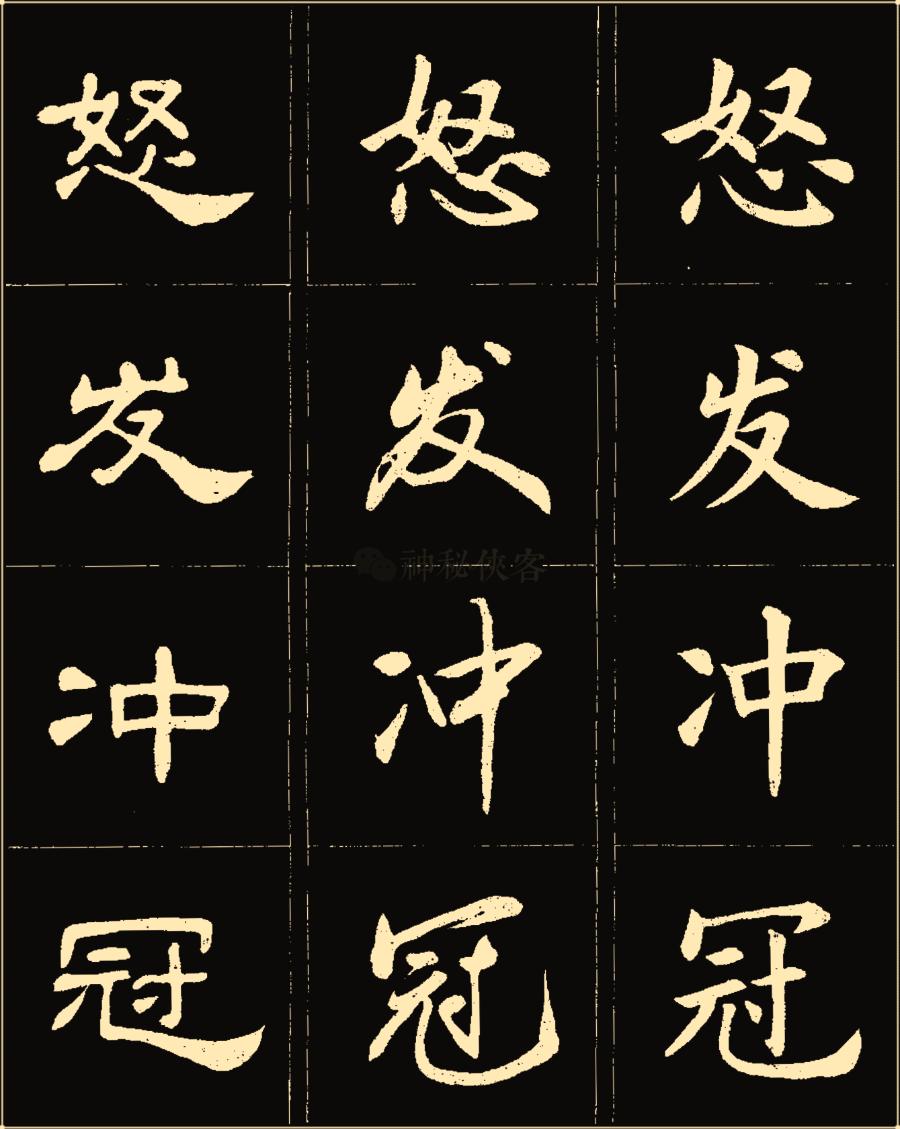 怒 怒 怒
发 发 发
冲 冲 冲
神秘侠客
冠 冠 冠